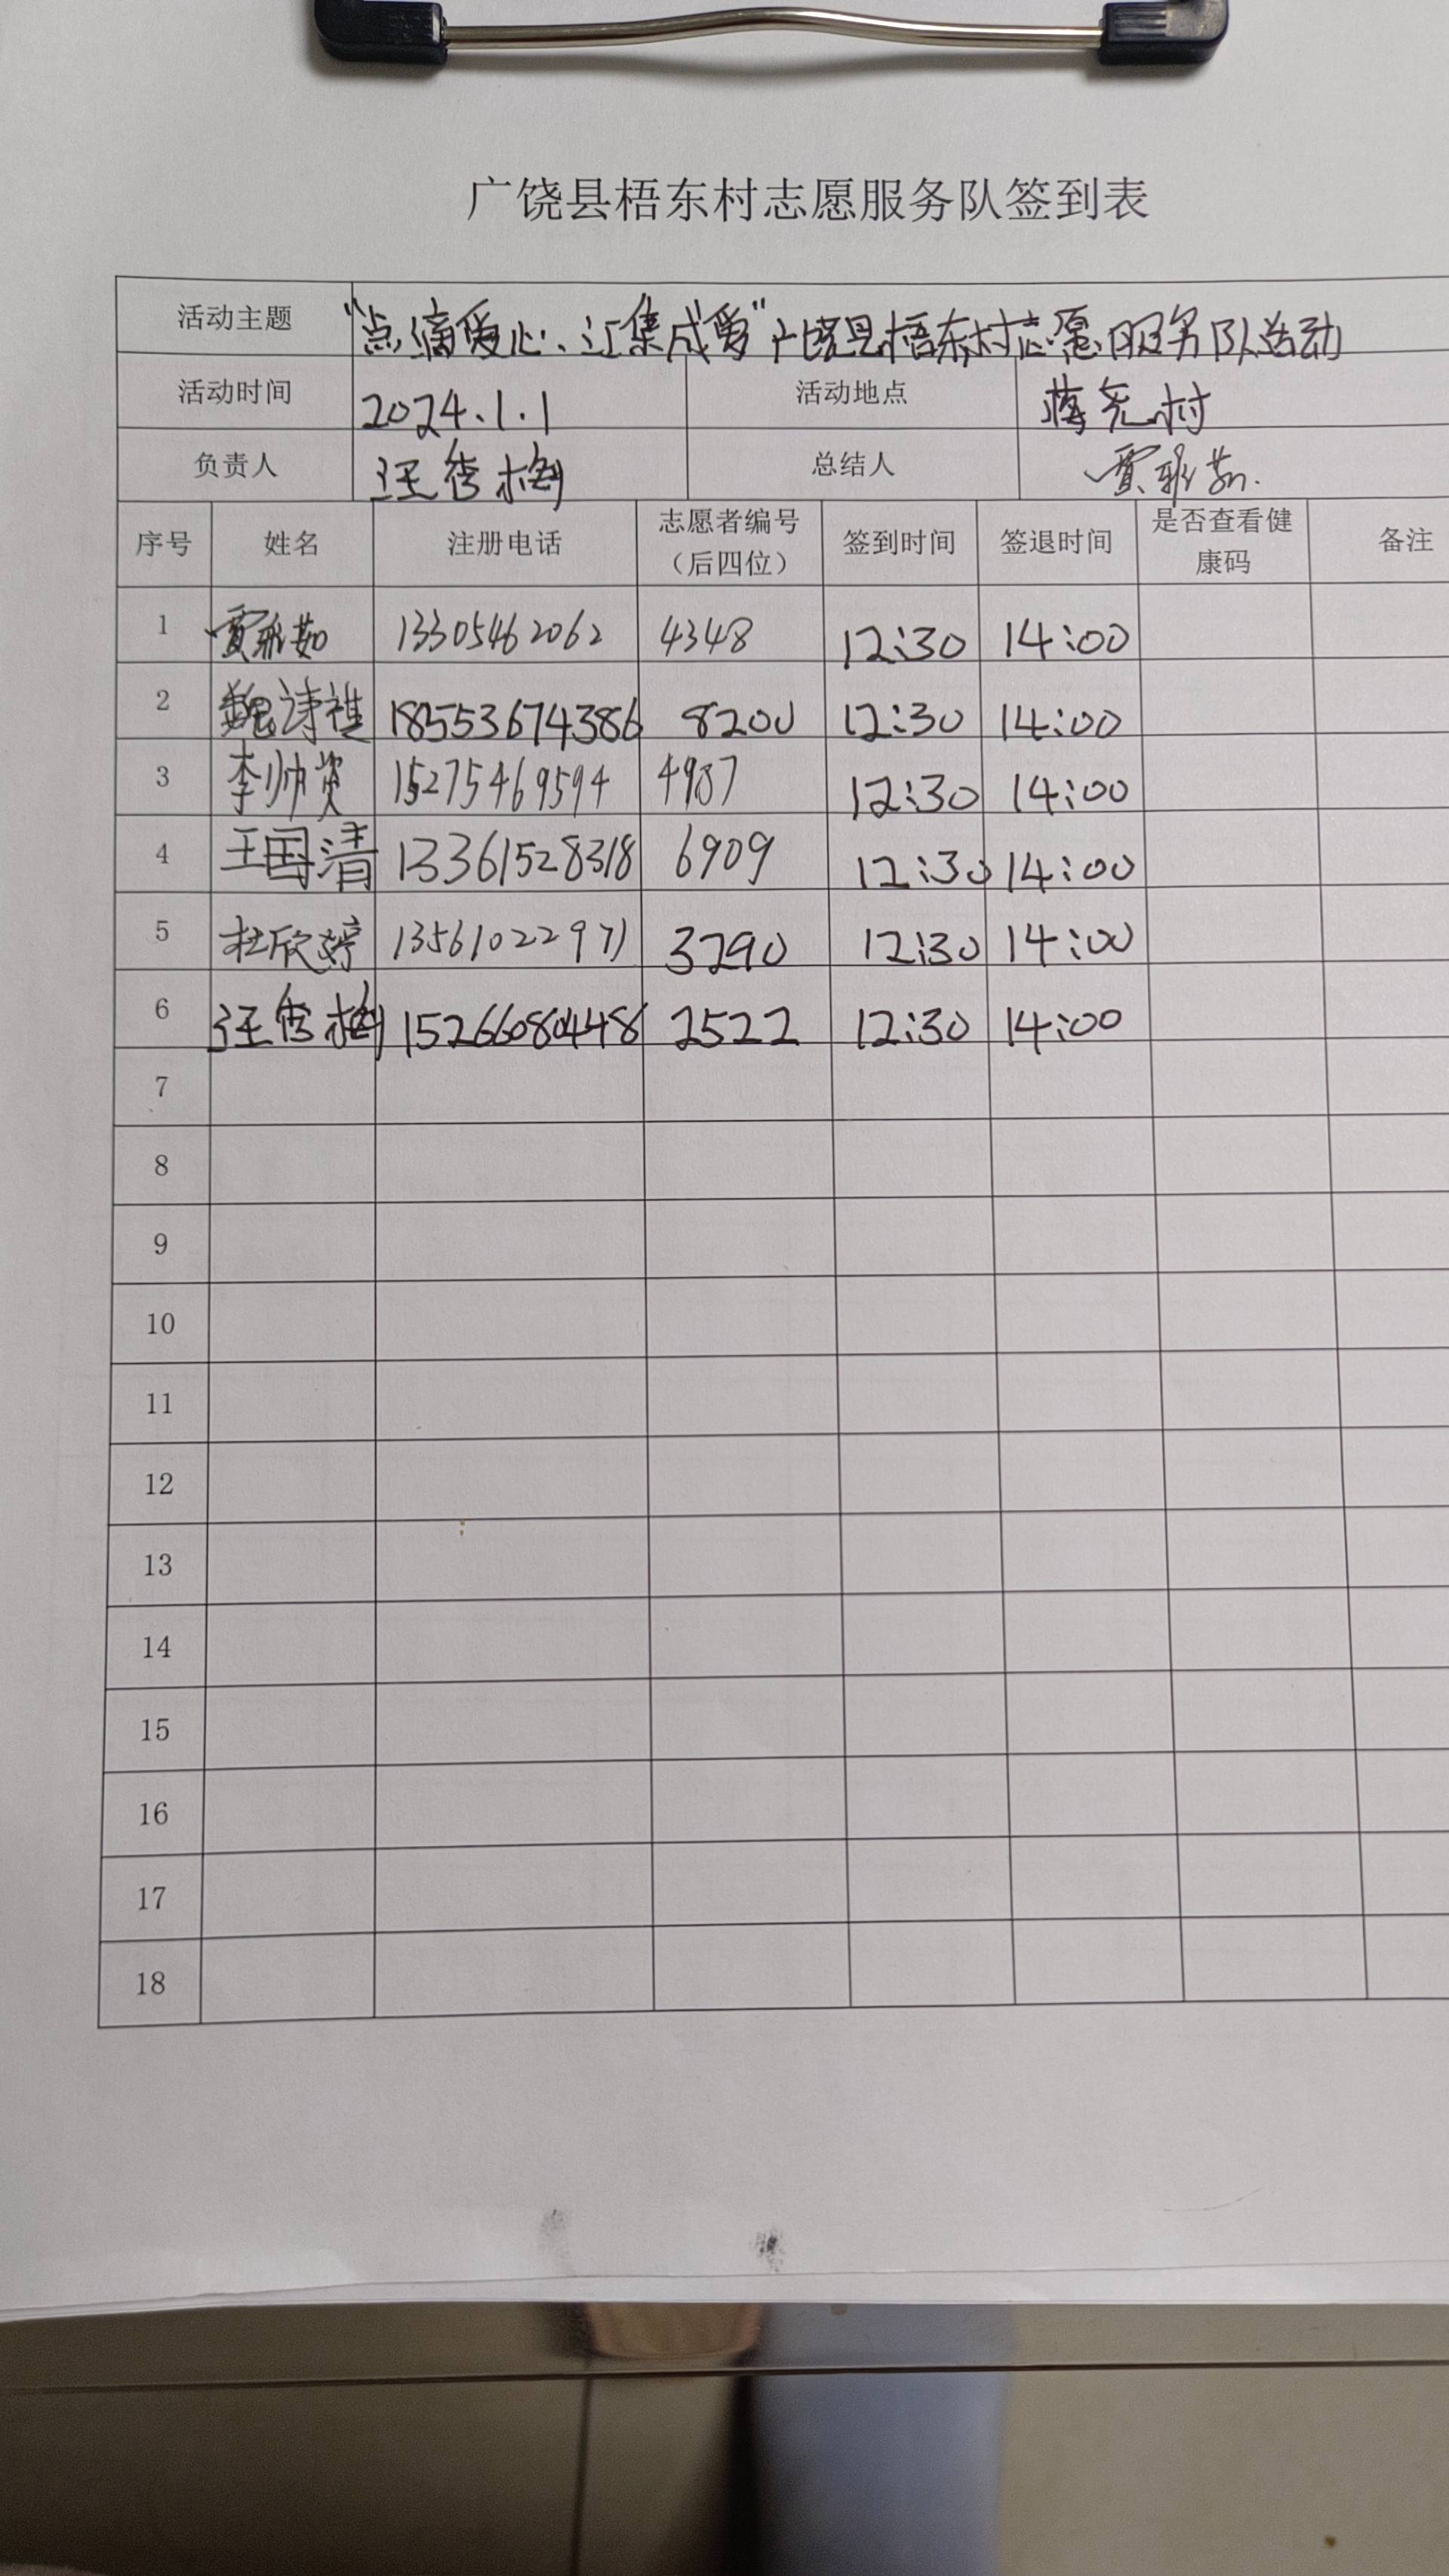 广饶县梧东村志愿服务队签到表
活动主题 “点滴爱心、汇集成爱”广饶县梧东村志愿服务队活动
活动时间 2024.1.1 活动地点 蒋尧村
负责人 汪雪梅 总结人 贾雅茹
序号 姓名 注册电话 志愿者编号（后四位） 签到时间 签退时间 是否查看健康码 备注
1 贾雅茹 13305462062 4348 12:30 14:00
2 魏诗禛 18553674386 8200 12:30 14:00
3 李帅贤 15275469594 4987 12:30 14:00
4 王国清 13361528318 6909 12:30 14:00
5 杜欣婷 13561022971 3290 12:30 14:00
6 汪雪梅 15266080448 2522 12:30 14:00
7
8
9
10
11
12
13
14
15
16
17
18